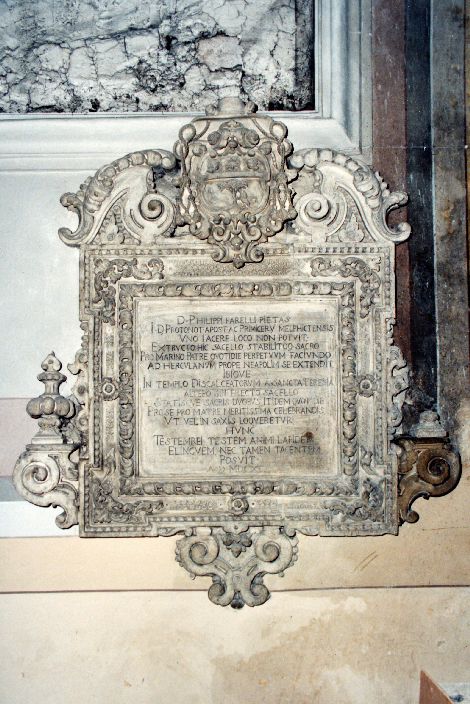 D · PHILIPPI FARELLI PIETAS
I · D PROTONOT APOST AC PRIMICERY MELPHICTENSIS
VNO IACERE LOCO NON POTVIT
EXTRVCTO HIC SACELLO STABILITOQ SACRO
PRO MARINO PATRE QVOTIDIE PERPETVVM FACIVNDO
AD HERCVLANVM PROPE NEAPOLIM SE EXTENDIT
IBIQVE
IN TEMPLO DISCALCEATORVM A SANCTA TERESIA
ALTERO SACELLO
SACRIS ITIDEM
PRO MATRE MERITISSIMA CELEBRANDIS
VT VEL IN SAXIS LOQVERETVR
HVNC
TESTEM ANIMI LAPIDEM
ELINGVEM NEC TAMEN TACENTEM
POSVIT